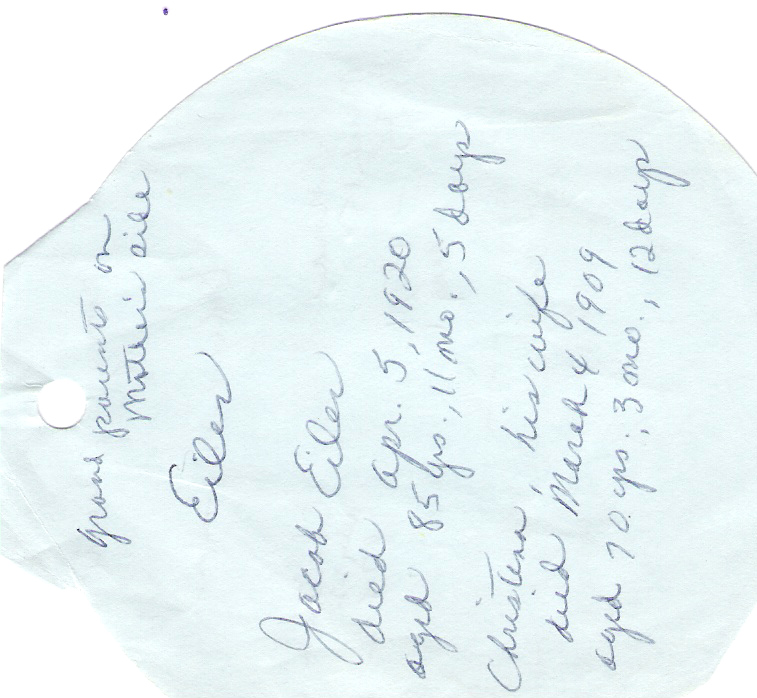 grand parents on
Mother's side
Eiler
Jacob Eiler
died Apr. 5, 1920
aged 85 yrs., 11 mo., 5 days
Christena, his wife
died March 4 1909
aged 70 yrs., 3 mo., 12 days